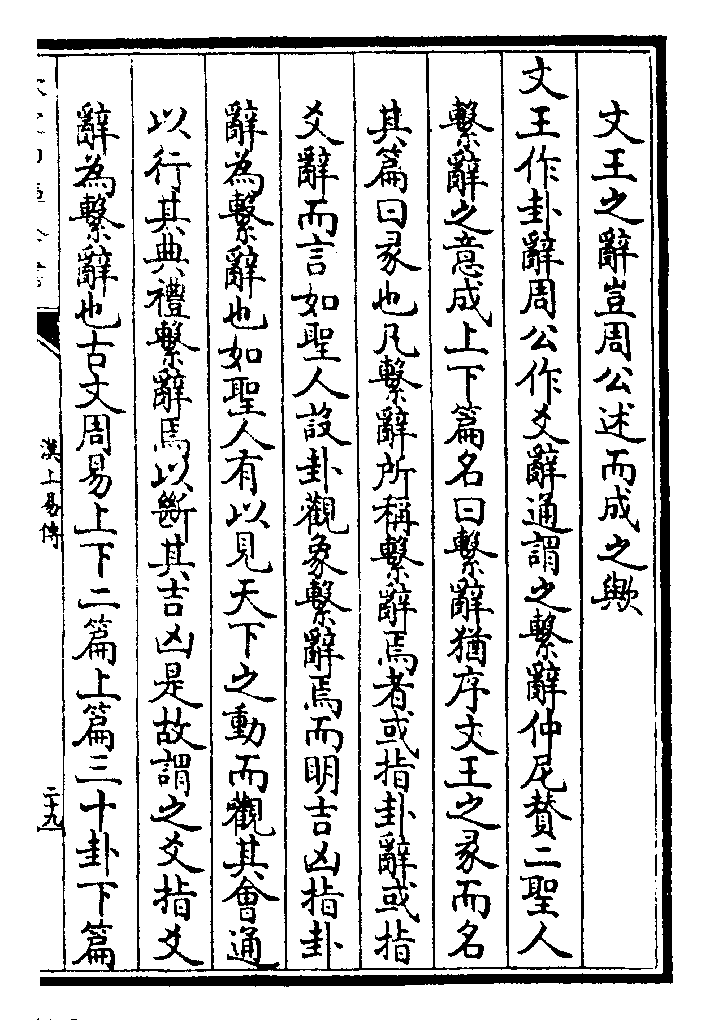 文王之辭豈周公述而成之歟
文王作卦辭周公作爻辭通謂之繫辭仲尼贊二聖人
繫辭之意成上下篇名曰繫辭猶序文王之彖而名
其篇曰彖也凡繫辭所稱繫辭焉者或指卦辭或指
爻辭而言如聖人設卦觀象繫辭焉而明吉凶指卦
辭為繫辭也如聖人有以見天下之動而觀其會通
以行其典禮繫辭焉以斷其吉凶是故謂之爻指爻
辭為繫辭也古文周易上下二篇上篇三十卦下篇
漢上易傳
二十九